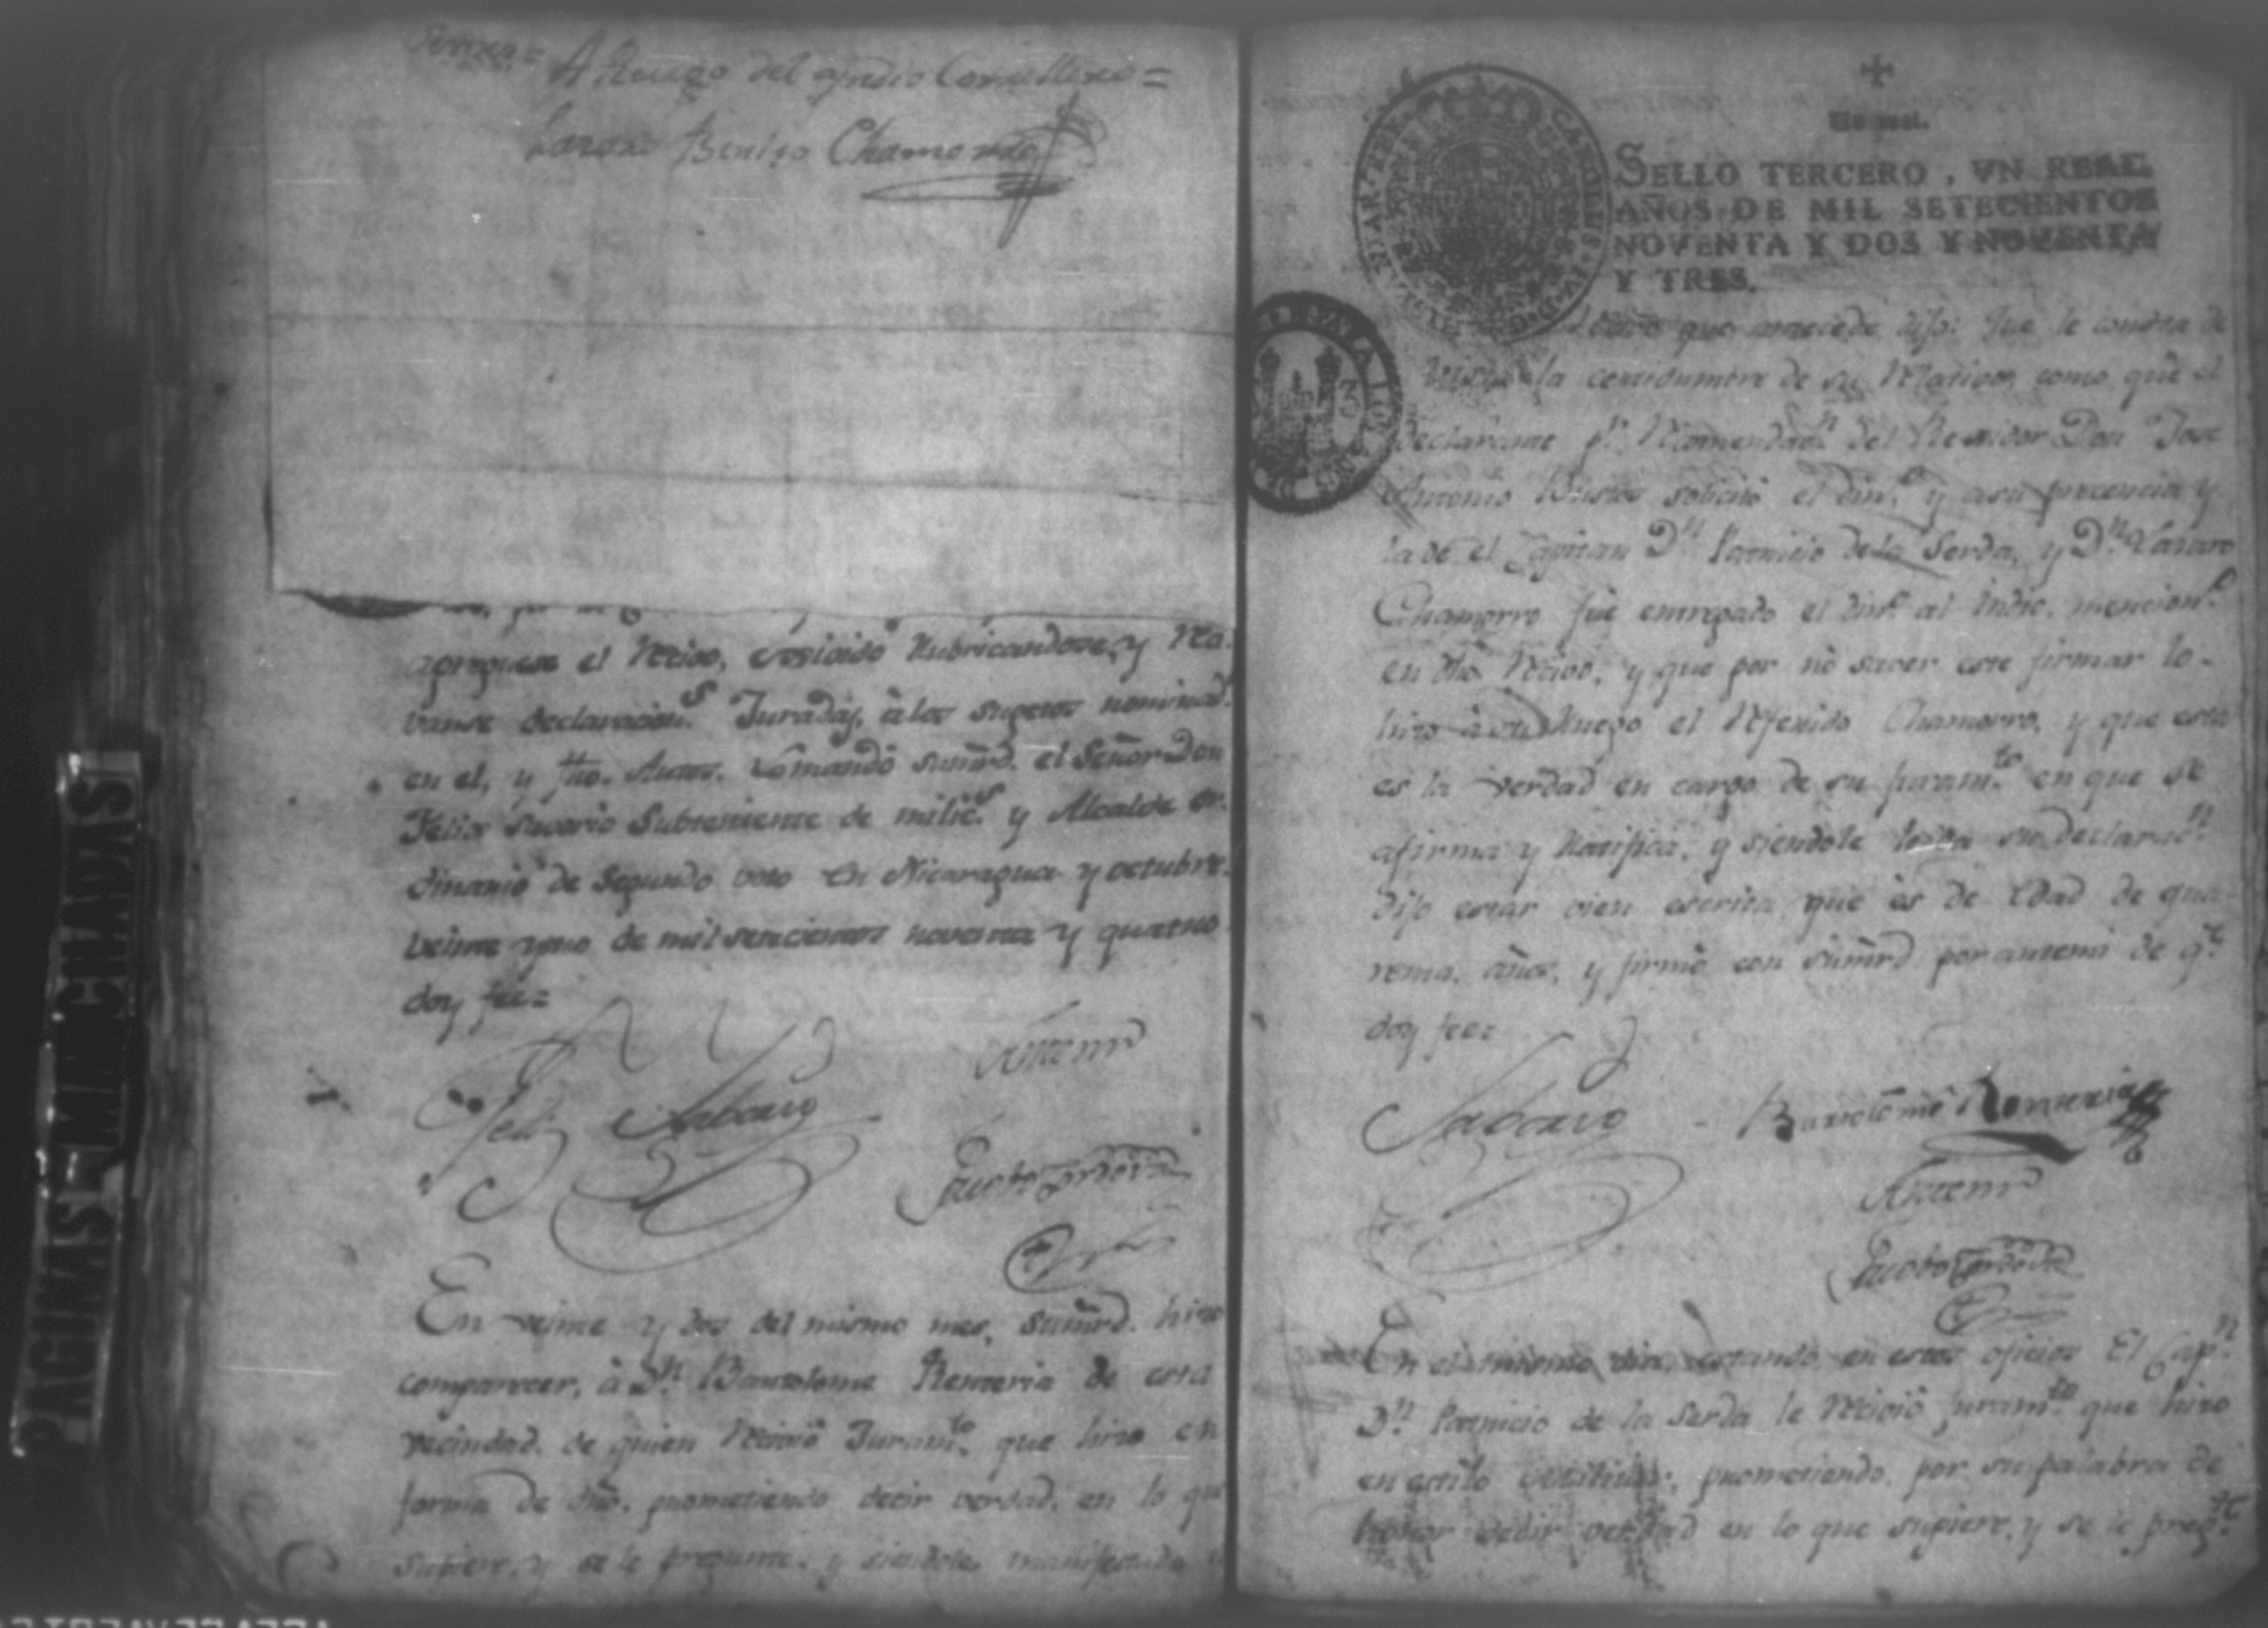 A Ruego del yndio Camellero =
Lazaro Benito Chamorro
agreguese el Recivo, exsivido Rubricandose, y Re
banse declaracion.s Juradas, à los sugetos nominad.s
en el, y fho. Autos. Lo mandò sumrd. el Señor Don
Felix Saverio Subteniente de milic.s y Alcalde or
dinario de Segundo voto En Nicaragua y octubre
veinte yuno de mil setecientos noventa y quatro
doy fee=
Antemi
Felix Saborio
Jacobo Cordova
En veinte y dos del mismo mes, sumrd. hizo
comparecer, à Dn. Bartolome Renteria de esta
vecindad. de quien Recivio Juram.to que hizo en
forma de dro. prometiendo decir verdad. en lo que
supiere, y se le pregunte. y siendole manifestado
Un real.
SELLO TERCERO, VN REAL
AÑOS DE MIL SETECIENTOS
NOVENTA Y DOS Y NOVENTA
Y TRES.
que antecede dijo: Que le consta de
la certidumbre de su Recivo, como que el
declarante pr. Recomendasn. del Regidor Don Jose
Antonio Bustos solicitò el din.o y asu precencia y
la de el Capitan Dn. Patricio de la Serda, y Dn. Lazaro
Chamorro fue entregado el din.o al Indio. mencion.o
en dho Recivo, y que por no saver este firmar lo
hizo à su Ruego el Referido Chamorro, y que esta
es la verdad en cargo de su juram.to en que se
afirma y Ratifica, y siendole leida su declarac.n
dijo estar vien escrita que és de Edad de qua
renta. años, y firmò con sumrd por antemi de q.e
doy fee=
Saborio - Bartolomè Renteria
Antemi
Jacobo Cordova
En el mismo dia estando en estos oficios El Cap.n
Dn. Patricio de la Serda le Recivio juram.to que hizo
en estilo militar, prometiendo. por su palabra de
honor decir verdad en lo que supiere, y se le preg.te
PAGINAS MANCHADAS